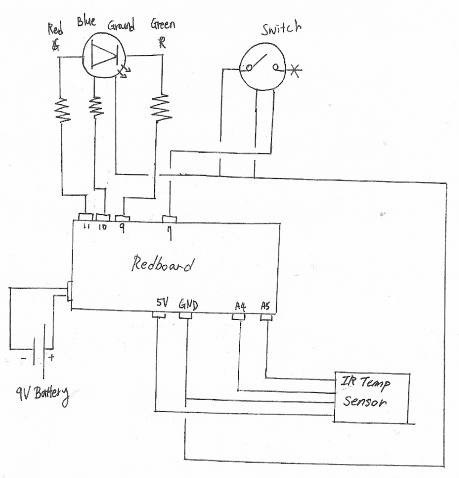 Red Blue Ground Green
G R
Switch
11 10 9 7
Redboard
5V GND A4 A5
- +
9V Battery
IR Temp
Sensor